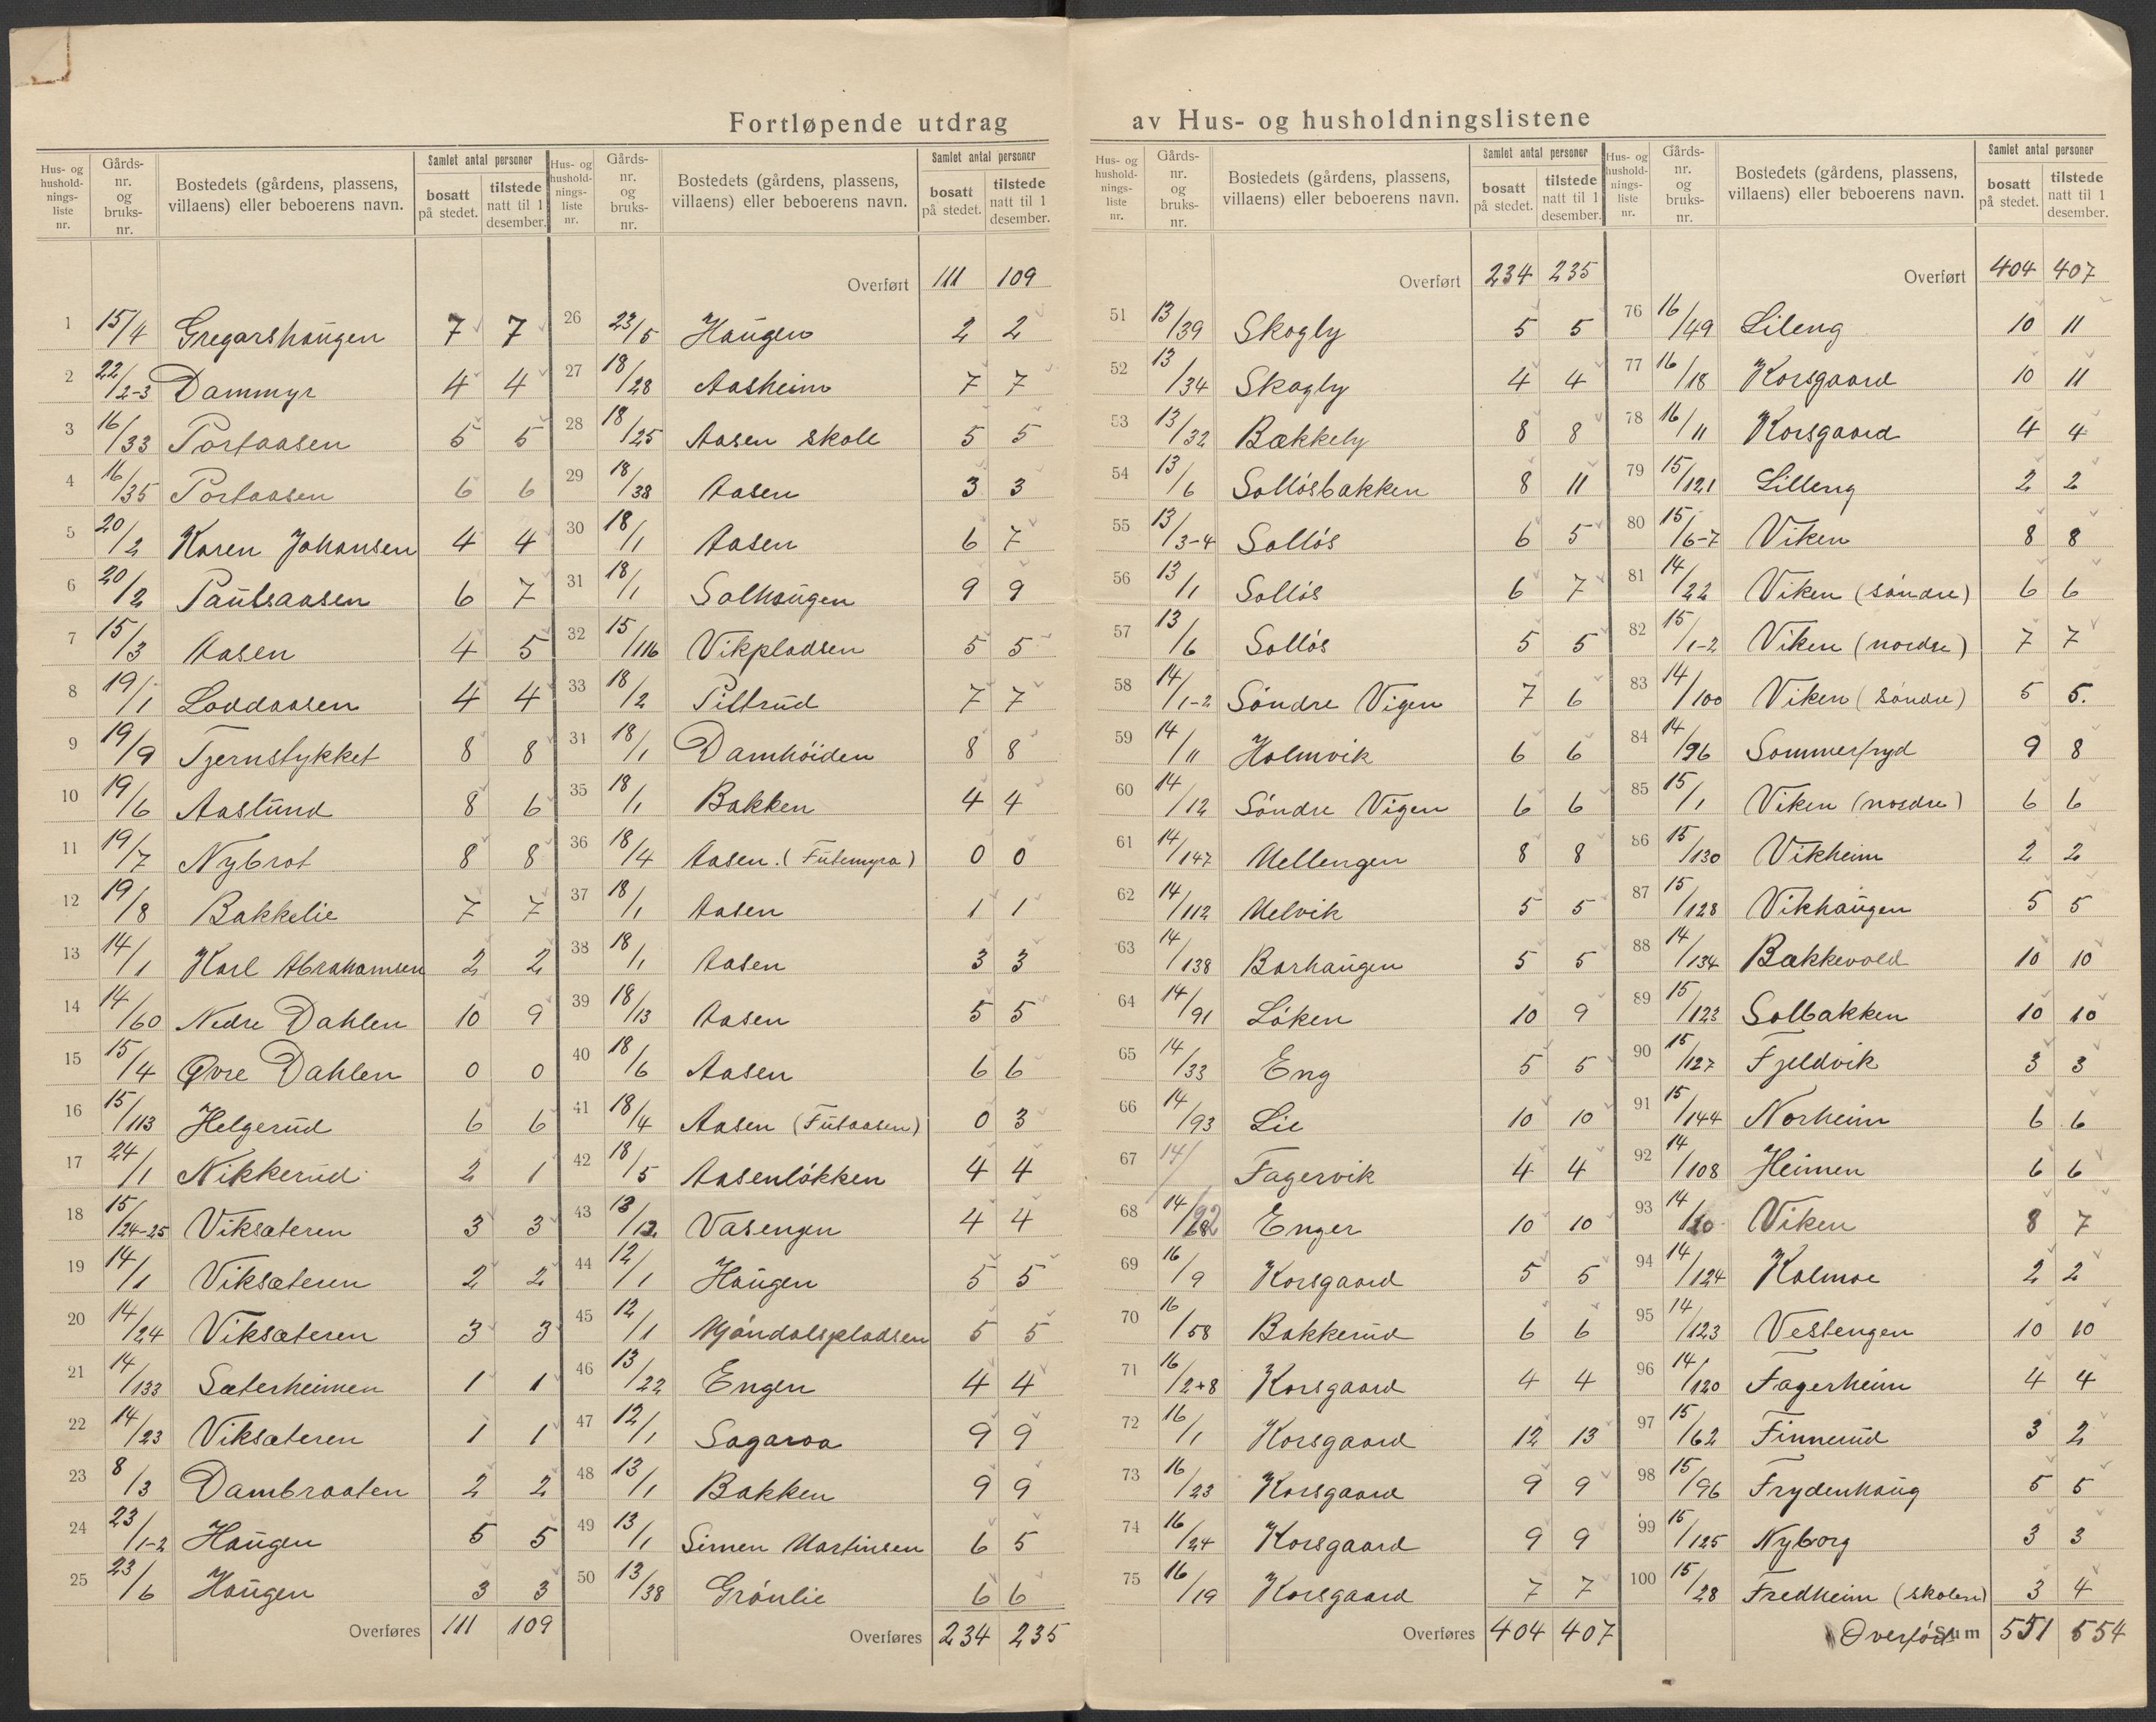 Fortløpende utdrag av Hus- og husholdningslistene
Hus- og hushold-nings-liste nr. | Gårds-nr. og bruks-nr. | Bostedets (gårdens, plassens, villaens) eller beboerens navn. | Samlet antal personer: bosatt på stedet. | tilstede natt til 1 desember.
1 15/4 Gregarshaugen 7 7
2 22/2-3 Dammyr 4 4
3 16/33 Portaasen 5 5
4 16/35 Portaasen 6 6
5 20/2 Karen Johansen 4 4
6 20/2 Paulsaasen 6 7
7 15/3 Aasen 4 5
8 19/1 Loddaasen 4 4
9 19/9 Tjernstykket 8 8
10 19/6 Aaslund 8 6
11 19/7 Nybrot 8 8
12 19/8 Bakkelie 7 7
13 14/1 Karl Abrahamsen 2 2
14 14/60 Nedre Dahlen 10 9
15 15/4 Øvre Dahlen 0 0
16 15/113 Helgerud 6 6
17 24/1 Nikkerud 2 1
18 15/24-25 Viksæteren 3 3
19 14/1 Viksæteren 2 2
20 14/24 Viksæteren 3 3
21 14/133 Sæterheimen 1 1
22 14/23 Viksæteren 1 1
23 8/3 Dambraaten 2 2
24 23/1-2 Haugen 5 5
25 23/6 Haugen 3 3
Overføres 111 109
Hus- og hushold-nings-liste nr. | Gårds-nr. og bruks-nr. | Bostedets (gårdens, plassens, villaens) eller beboerens navn. | Samlet antal personer: bosatt på stedet. | tilstede natt til 1 desember.
Overført 111 109
26 23/5 Haugen 2 2
27 18/28 Aasheim 7 7
28 18/25 Aasen skole 5 5
29 18/38 Aasen 3 3
30 18/1 Aasen 6 7
31 18/1 Solhaugen 9 9
32 15/116 Vikpladsen 5 5
33 18/2 Piltrud 7 7
34 18/1 Damhöiden 8 8
35 18/1 Bakken 4 4
36 18/4 Aasen. (Futemyra) 0 0
37 18/1 Aasen 1 1
38 18/1 Aasen 3 3
39 18/13 Aasen 5 5
40 18/6 Aasen 6 6
41 18/4 Aasen (Futaasen) 0 3
42 18/5 Aasenlökken 4 4
43 13/12 Vasengen 4 4
44 12/1 Haugen 5 5
45 12/1 Mjöndalspladsen 5 5
46 13/22 Engen 4 4
47 12/1 Sagaroa 9 9
48 13/1 Bakken 9 9
49 13/1 Simen Martinsen 6 5
50 13/38 Grönlie 6 6
Overføres 234 235
Hus- og hushold-nings-liste nr. | Gårds-nr. og bruks-nr. | Bostedets (gårdens, plassens, villaens) eller beboerens navn. | Samlet antal personer: bosatt på stedet. | tilstede natt til 1 desember.
Overført 234 235
51 13/39 Skogly 5 5
52 13/34 Skogly 4 4
53 13/32 Bakkely 8 8
54 13/6 Sollösbakken 8 11
55 13/3-4 Sollös 6 5
56 13/1 Sollös 6 7
57 13/6 Sollös 5 5
58 14/1-2 Söndre Vigen 7 6
59 14/11 Holmvik 6 6
60 14/12 Söndre Vigen 6 6
61 14/147 Mellengen 8 8
62 14/112 Melvik 5 5
63 14/138 Borhaugen 5 5
64 14/91 Löken 10 9
65 14/33 Eng 5 5
66 14/93 Lie 10 10
67 14/ Fagervik 4 4
68 14/92 Enger 10 10
69 16/9 Korsgaard 5 5
70 16/58 Bakkerud 6 6
71 16/2+8 Korsgaard 4 4
72 16/1 Korsgaard 12 13
73 16/23 Korsgaard 9 9
74 16/24 Korsgaard 9 9
75 16/19 Korsgaard 7 7
Overføres 404 407
Hus- og hushold-nings-liste nr. | Gårds-nr. og bruks-nr. | Bostedets (gårdens, plassens, villaens) eller beboerens navn. | Samlet antal personer: bosatt på stedet. | tilstede natt til 1 desember.
Overført 404 407
76 16/49 Lileng 10 11
77 16/18 Korsgaard 10 11
78 16/11 Korsgaard 4 4
79 15/121 Lilleng 2 2
80 15/6-7 Viken 8 8
81 14/22 Viken (söndre) 6 6
82 15/1-2 Viken (nordre) 7 7
83 14/100 Viken (söndre) 5 5.
84 14/96 Sommerfryd 9 8
85 15/1 Viken (nordre) 6 6
86 15/130 Vikheim 2 2
87 15/128 Vikhaugen 5 5
88 14/134 Bakkevold 10 10
89 15/123 Solbakken 10 10
90 15/127 Fjeldvik 3 3
91 15/144 Norheim 6 6
92 14/108 Heimen 6 6
93 14/20 Viken 8 7
94 14/124 Kolmoe 2 2
95 14/123 Vestengen 10 10
96 14/120 Fagerheim 4 4
97 15/62 Finnerud 3 2
98 15/96 Frydenhaug 5 5
99 15/125 Nyborg 3 3
100 15/28 Fredheim (skolen) 3 4
Overført Sum 551 554